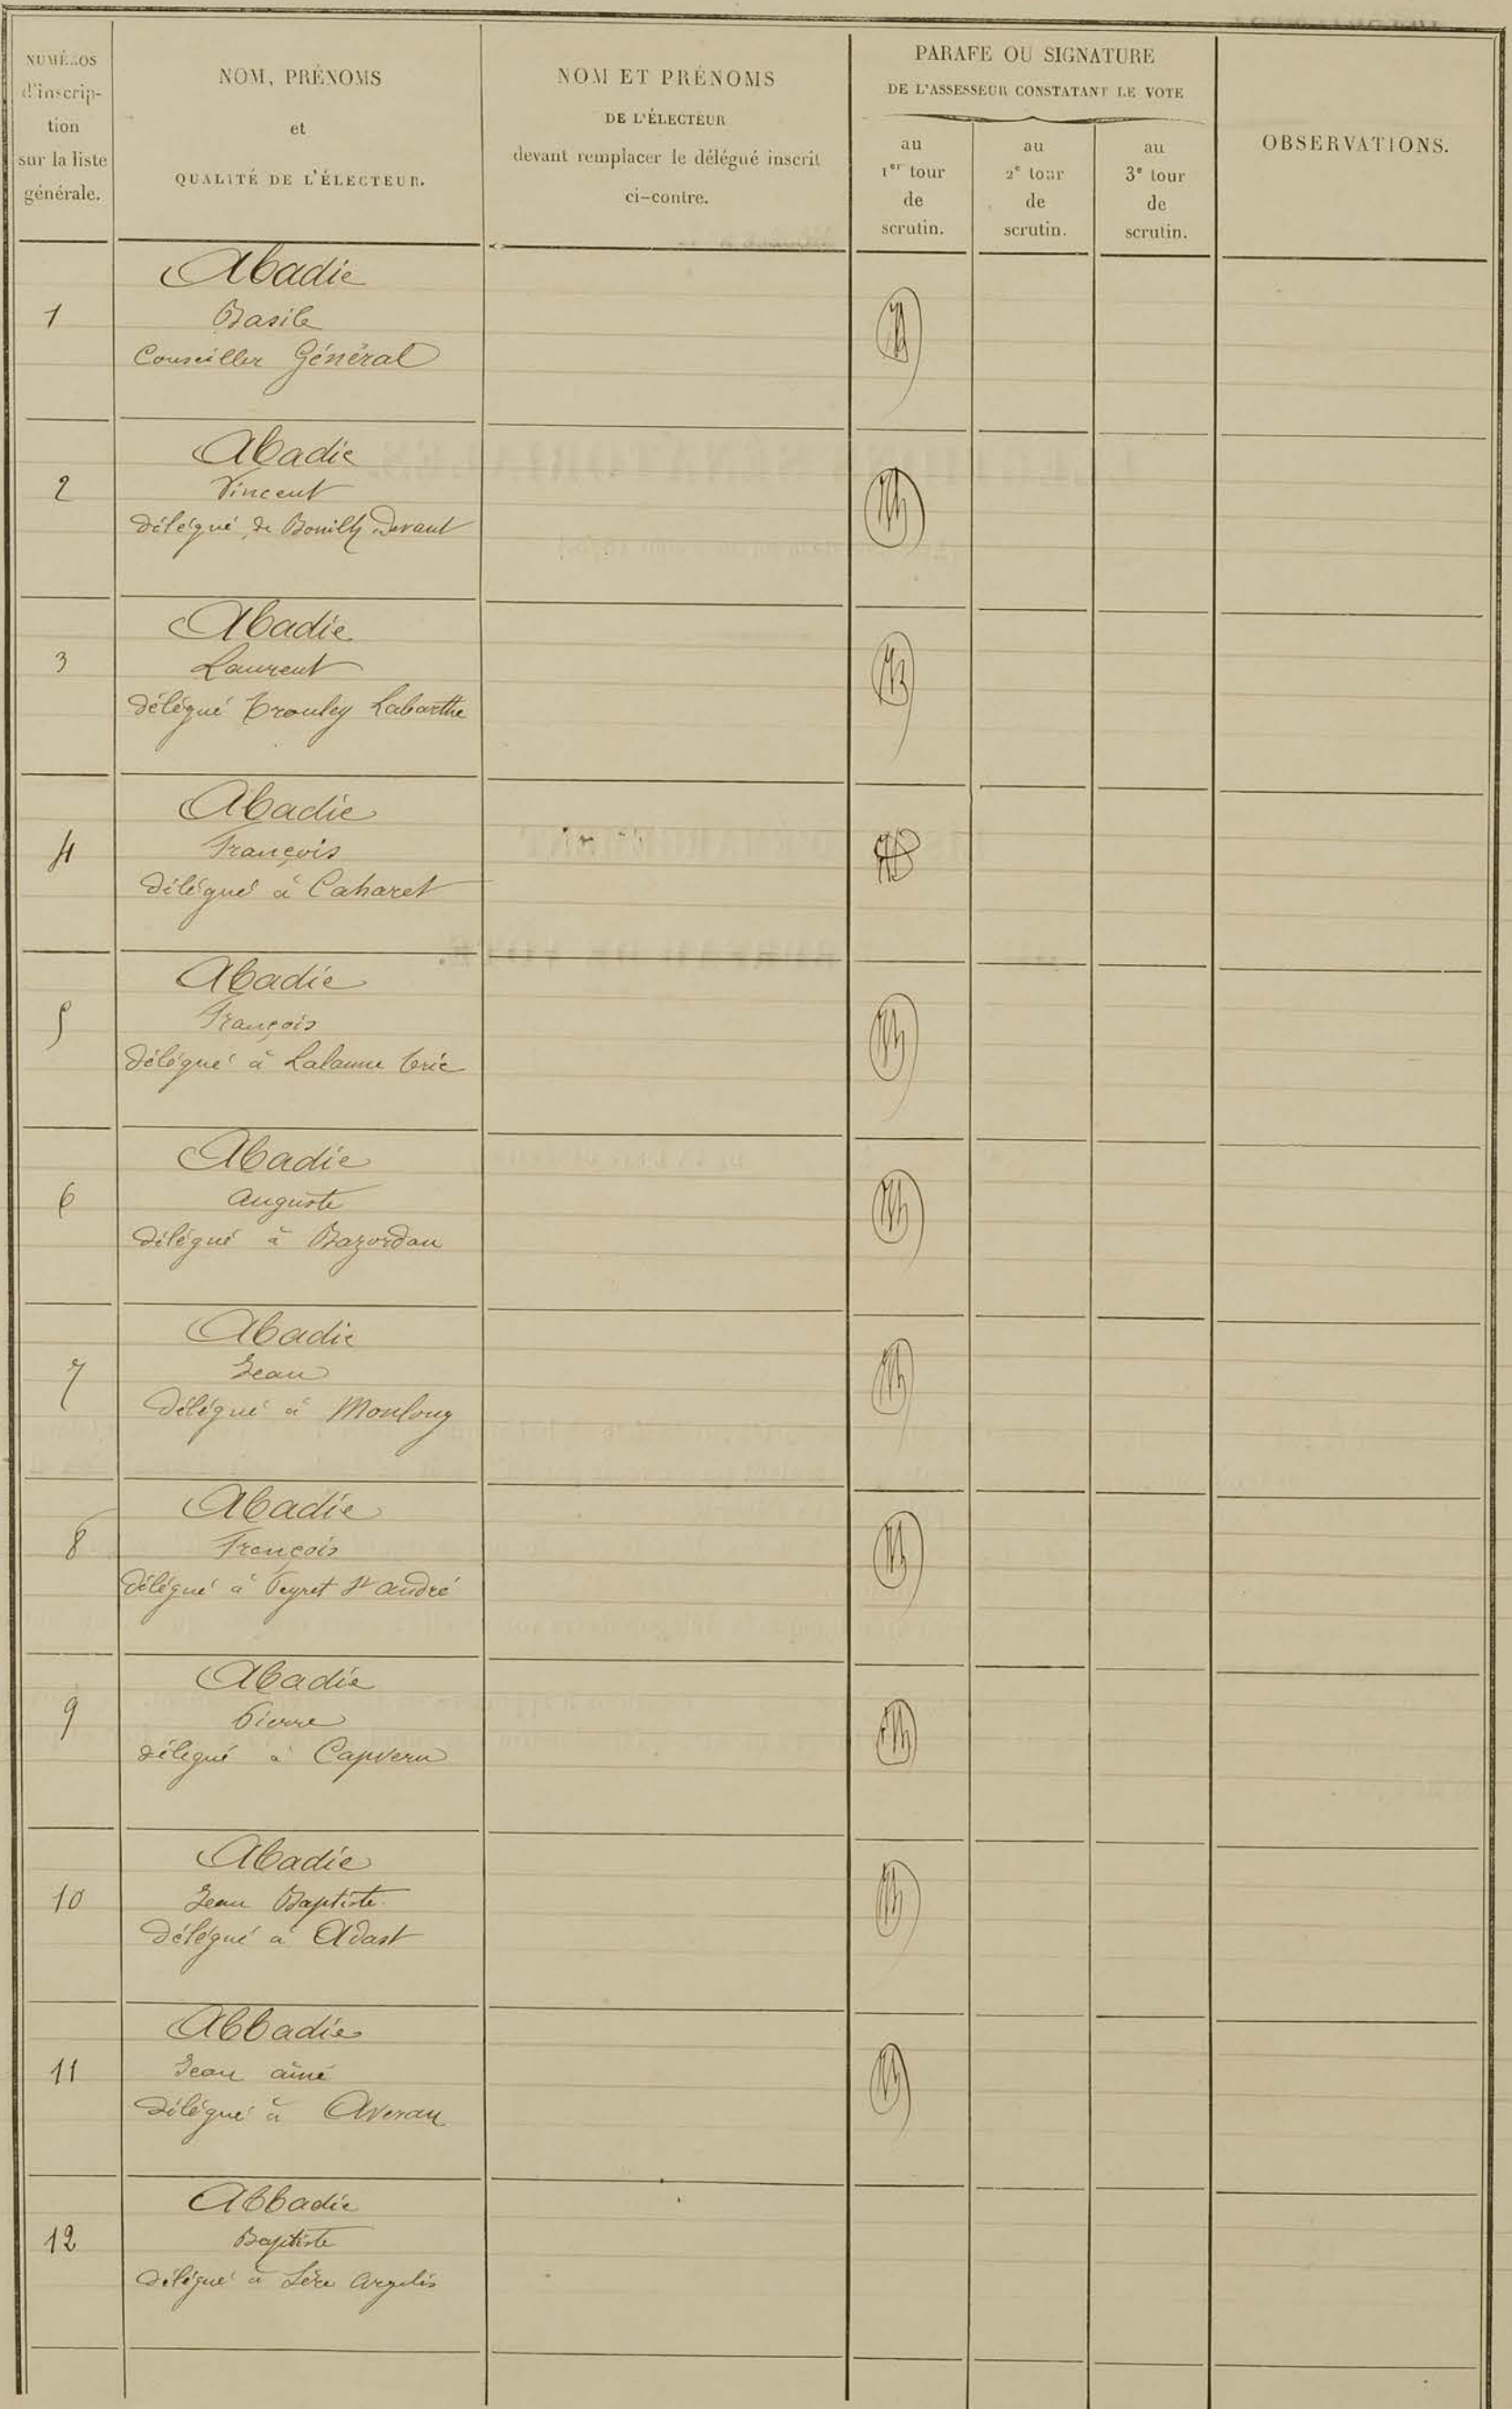 NUMÉROS
d'inscrip-
tion
sur la liste
générale.
NOM, PRÉNOMS
et
QUALITÉ DE L'ÉLECTEUR.
NOM ET PRÉNOMS
DE L'ÉLECTEUR
devant remplacer le délégué inscrit
ci-contre.
PARAFE OU SIGNATURE
DE L'ASSESSEUR CONSTATANT LE VOTE
au
1er tour
de
scrutin.
au
2e tour
de
scrutin.
au
3e tour
de
scrutin.
OBSERVATIONS.
Abadie
1 Basile
Conseiller Général
Abadie
2 Vincent
délégué de Bouilh Devant
Abadie
3 Laurent
délégué Trouley Labarthe
Abadie
4 François
délégué à Caharet
Abadie
5 François
délégué à Lalanne Trie
Abadie
6 Auguste
délégué à Bazordan
Abadie
7 Jean
délégué à Monlong
Abadie
8 François
délégué à Peyret St André
Abadie
9 Pierre
délégué à Capvern
Abadie
10 Jean Baptiste
Délégué à Adast
Abbadie
11 Jean aîné
délégué à Averan
Abbadie
12 Baptiste
délégué à Sère Argelès